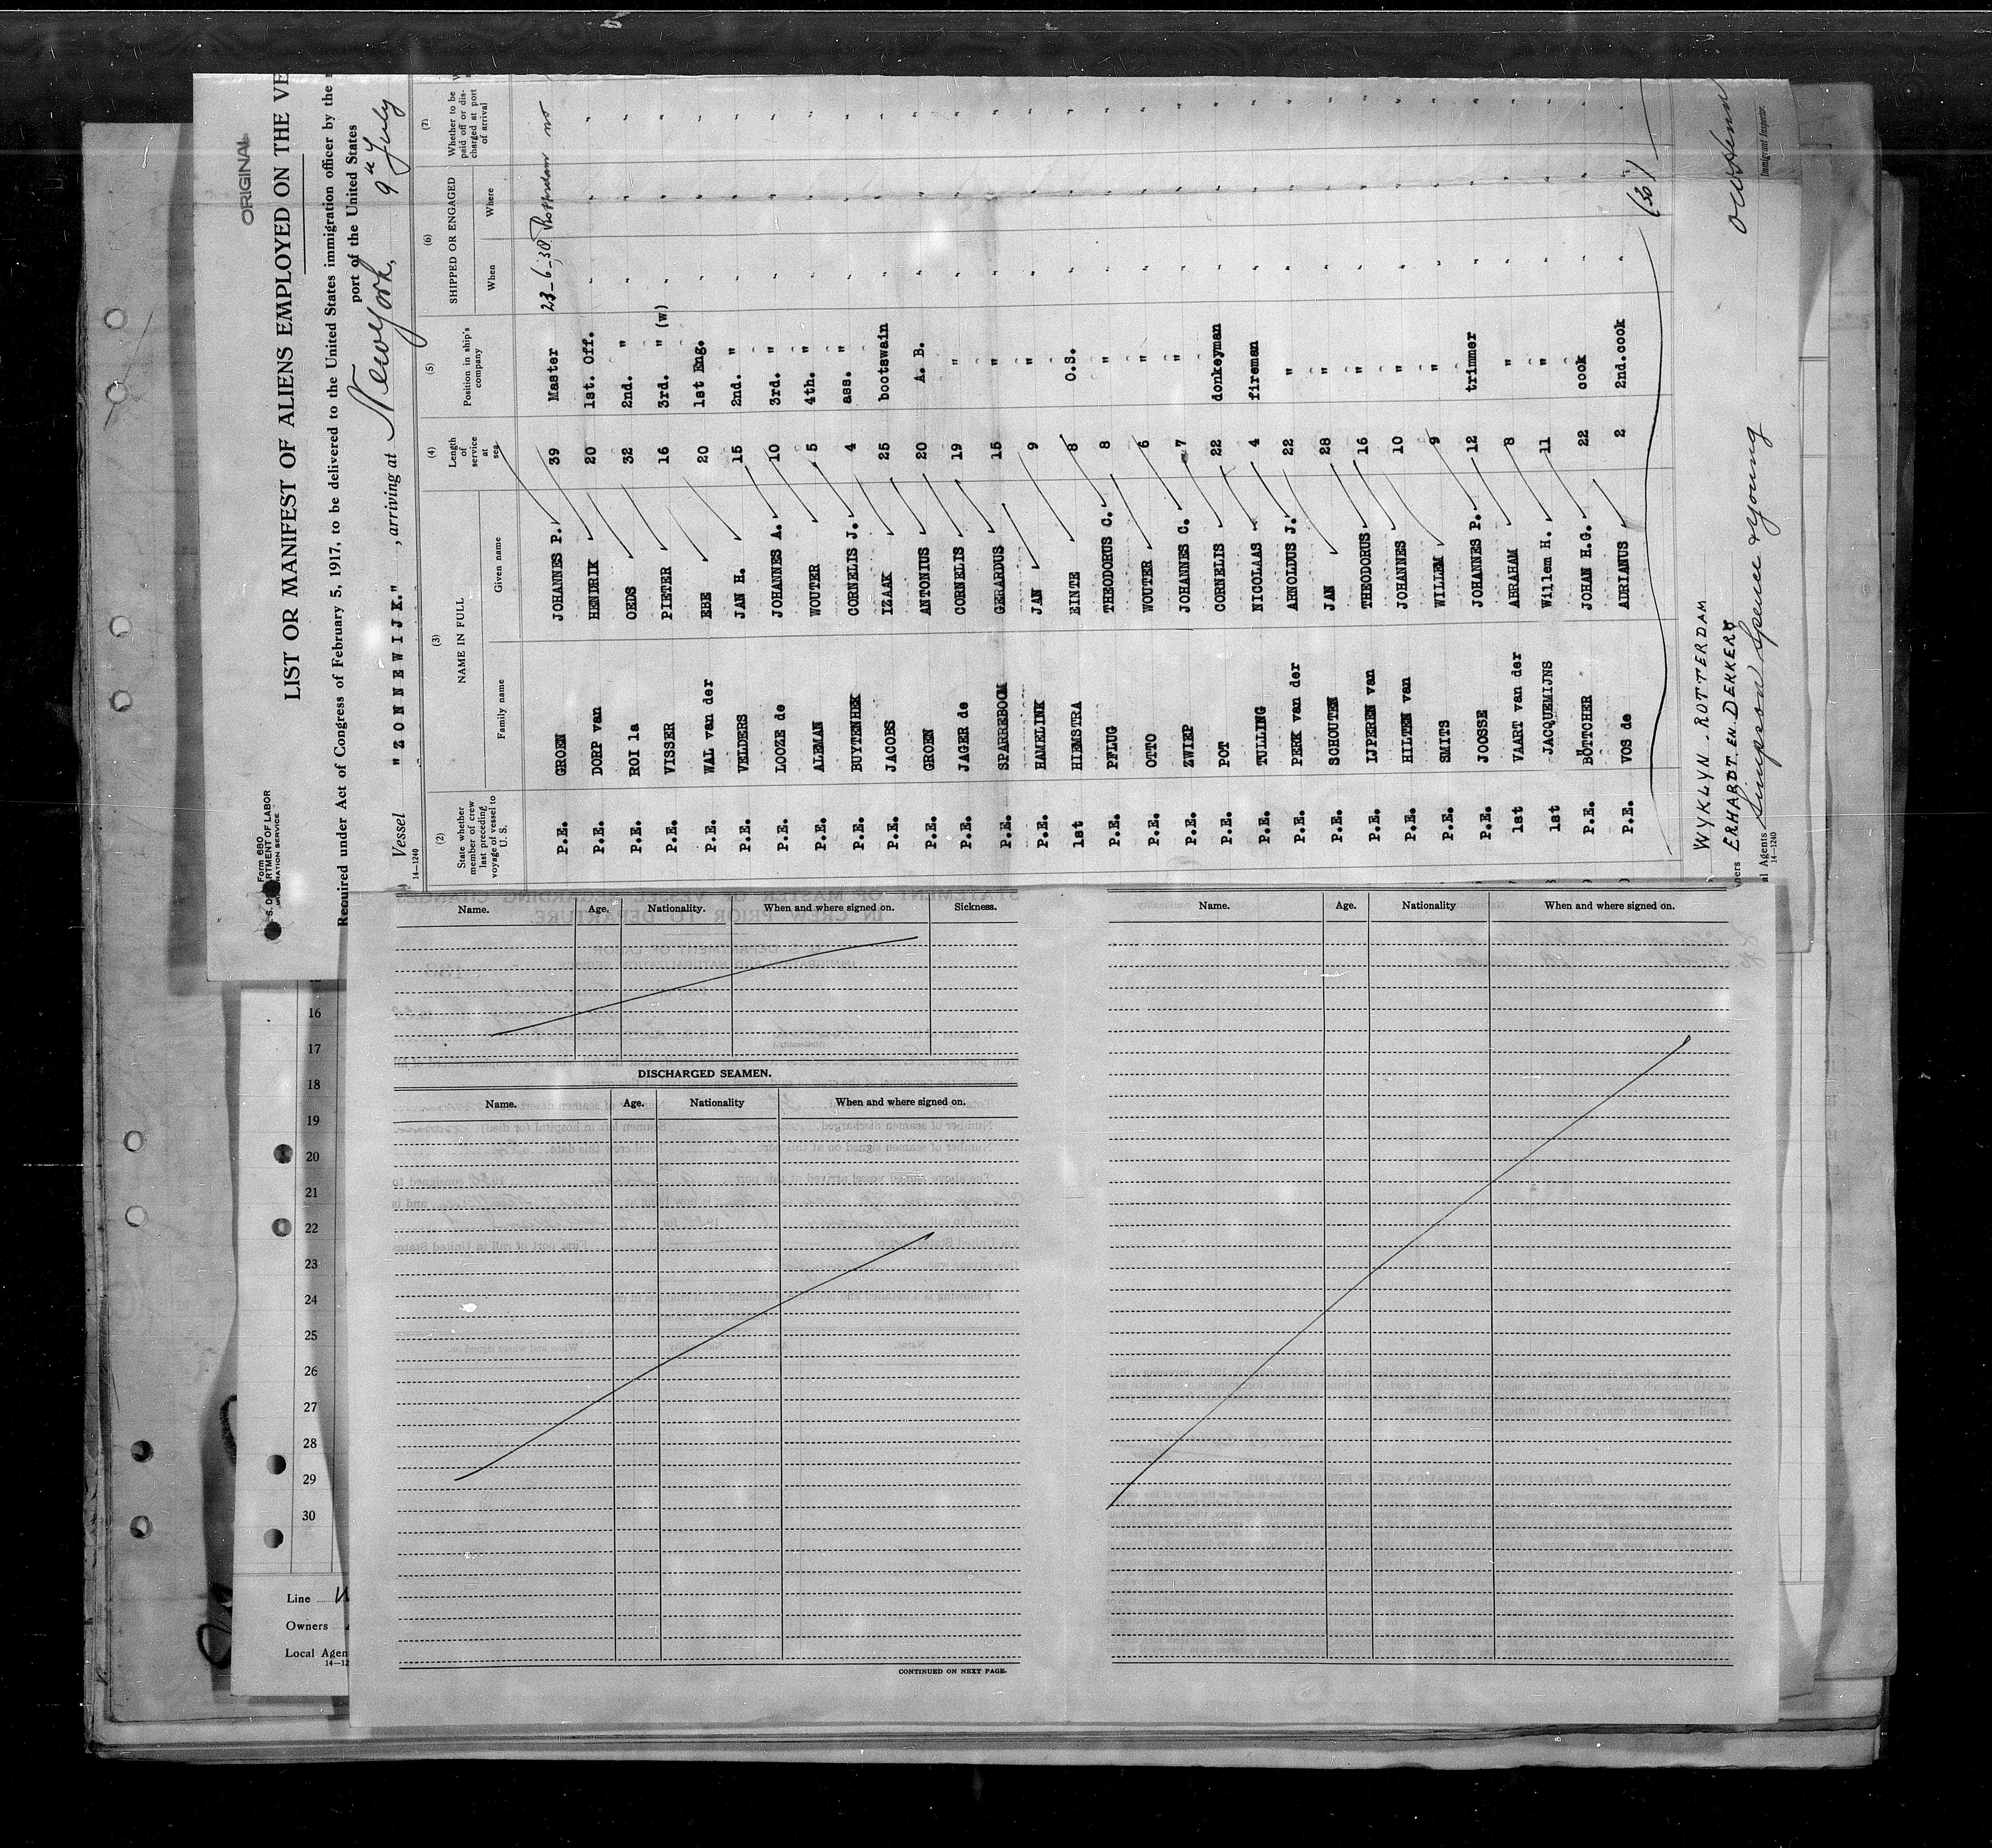 ORIGINAL
Form 680
LIST OR MANIFEST OF ALIENS EMPLOYED ON THE VE
Required under Act of Congress of February 5, 1917, to be delivered to the United States immigration officer by the
port of the United States
Vessel "ZONNEWIJK." , arriving at New York, 9th July
14—1240
(2) (3) (4) (5) (6) (7)
State whether member of crew last preceding voyage of vessel to U. S. NAME IN FULL Length of service at sea Position in ship's company SHIPPED OR ENGAGED Whether to be paid off or discharged at port of arrival
Family name Given name When Where
P.E. GROEN JOHANNES P. 39 Master 23-6-30 Rotterdam no
P.E. DORP van HENDRIK 20 1st. Off. " " "
P.E. ROI la OEDS 32 2nd. " " " "
P.E. VISSER PIETER 16 3rd. " (w) " " "
P.E. WAL van der EBE 20 1st Eng. " " "
P.E. VELDERS JAN H. 15 2nd. " " " "
P.E. LOOZE de JOHANNES A. 10 3rd. " " " "
P.E. ALEMAN WOUTER 5 4th. " " " "
P.E. BUYTENHEK CORNELIS J. 4 ass. " " " "
P.E. JACOBS IZAAK 25 bootswain " " "
P.E. GROEN ANTONIUS 20 A. B. " " "
P.E. JAGER de CORNELIS 19 " " " "
P.E. SPARREBOOM GERARDUS 15 " " " "
P.E. HAMELINK JAN 9 " " " "
1st HIEMSTRA EINTE 8 O.S. " " "
P.E. PFLUG THEODORUS C. 8 " " " "
P.E. OTTO WOUTER 6 " " " "
P.E. ZWIEP JOHANNES C. 7 " " " "
P.E. POT CORNELIS 22 donkeyman " " "
P.E. TULLING NICOLAAS 4 fireman " " "
P.E. PERK van der ARNOLDUS J. 22 " " " "
P.E. SCHOUTEN JAN 28 " " " "
P.E. LJPEREN van THEODORUS 16 " " " "
P.E. HILTEN van JOHANNES 10 " " " "
P.E. SMITS WILLEM 9 " " " "
P.E. JOOSSE JOHANNES P. 12 trimmer " " "
1st VAART van der ABRAHAM 8 " " " "
1st JACQUEMIJNS Willem H. 11 " " " "
P.E. BÖTTCHER JOHAN H.G. 22 cook " " "
P.E. VOS de ADRIANUS 2 2nd.cook " " "
(30)
WYKLYN. ROTTERDAM
ERHARDT. EN. DEKKERS
al Agents Simpson Spence & Young
14—1240
Immigrant Inspector.
Name. Age. Nationality. When and where signed on. Sickness.
DISCHARGED SEAMEN.
Name. Age. Nationality When and where signed on.
CONTINUED ON NEXT PAGE.
Name. Age. Nationality When and where signed on.
16
17
18
19
20
21
22
23
24
25
26
27
28
29
30
Line
Owners
Local Agen
14—12